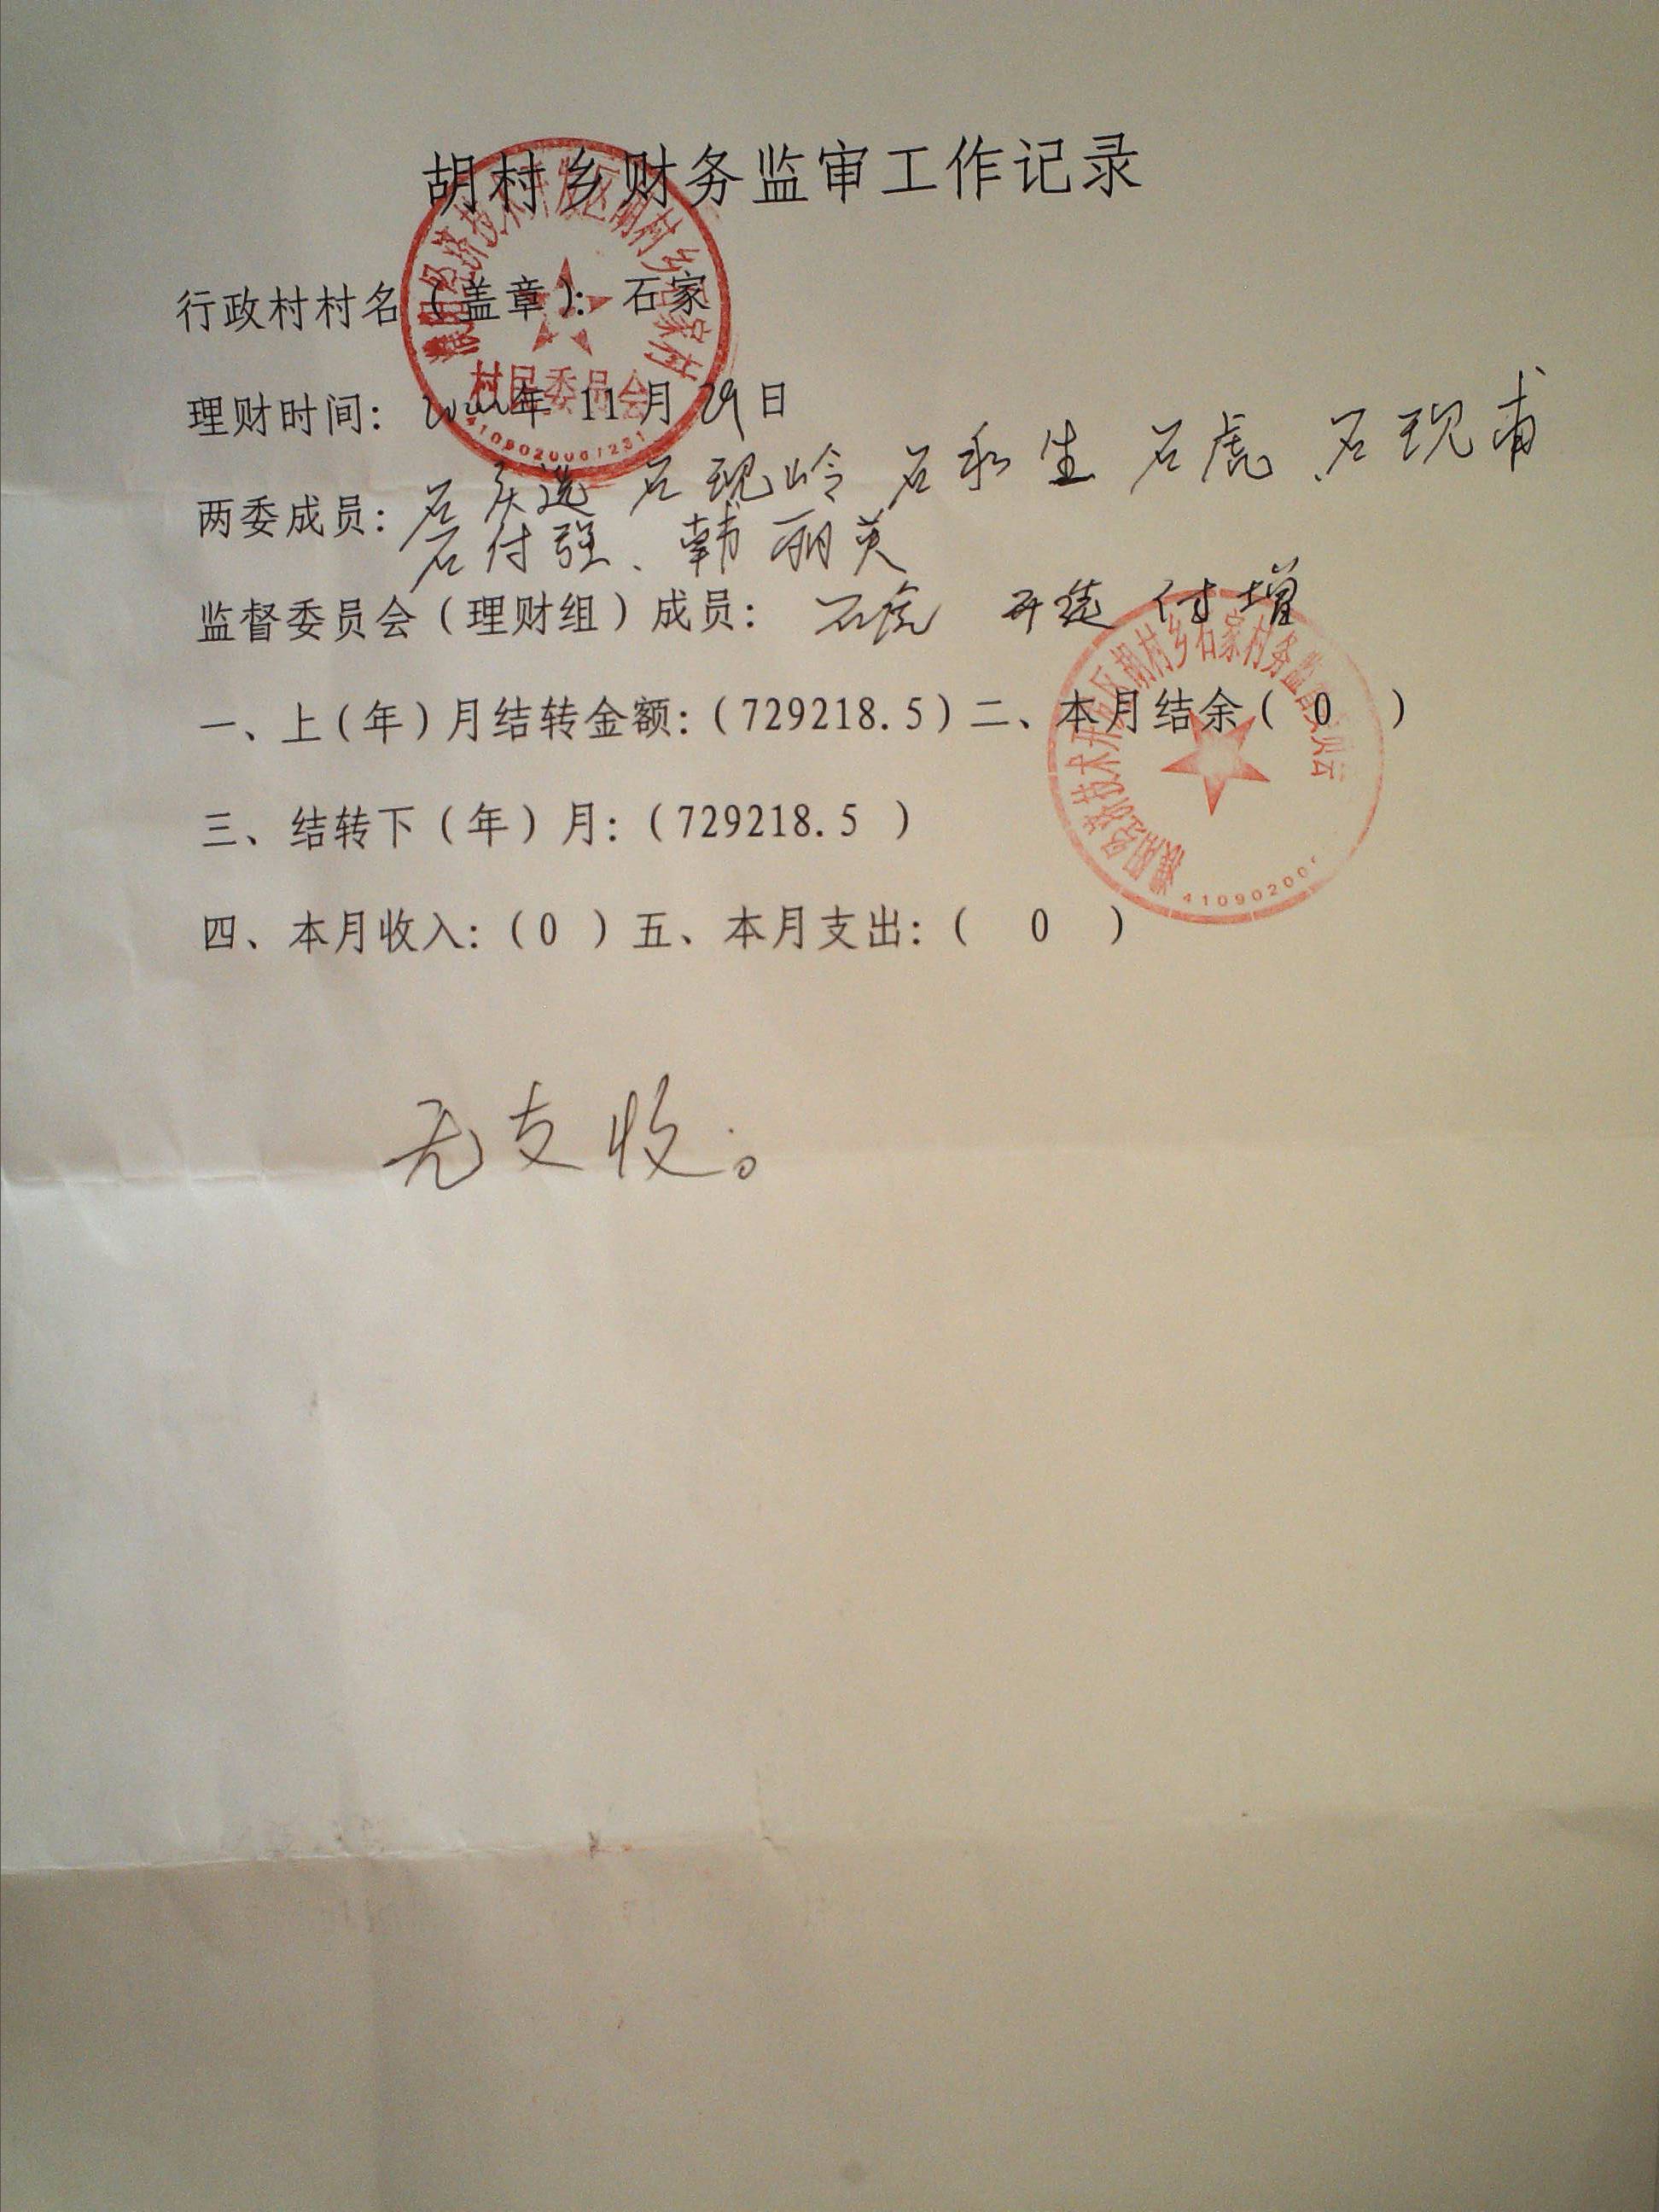 胡村乡财务监审工作记录
行政村村名（盖章）：石家
理财时间： 年 11 月 29 日
两委成员：石庆选 石现岭 石永生 石虎 石现甫
石付强、韩丽英
监督委员会（理财组）成员： 石虎 开选 付增
一、上（年）月结转金额：（729218.5）二、本月结余（ 0 ）
三、结转下（年）月：（729218.5 ）
四、本月收入：（0 ）五、本月支出：（ 0 ）
无支收。
濮阳经济技术开发区胡村乡石家村
村民委员会
4109020061231
濮阳经济技术开发区胡村乡石家村务监督委员会
41090200